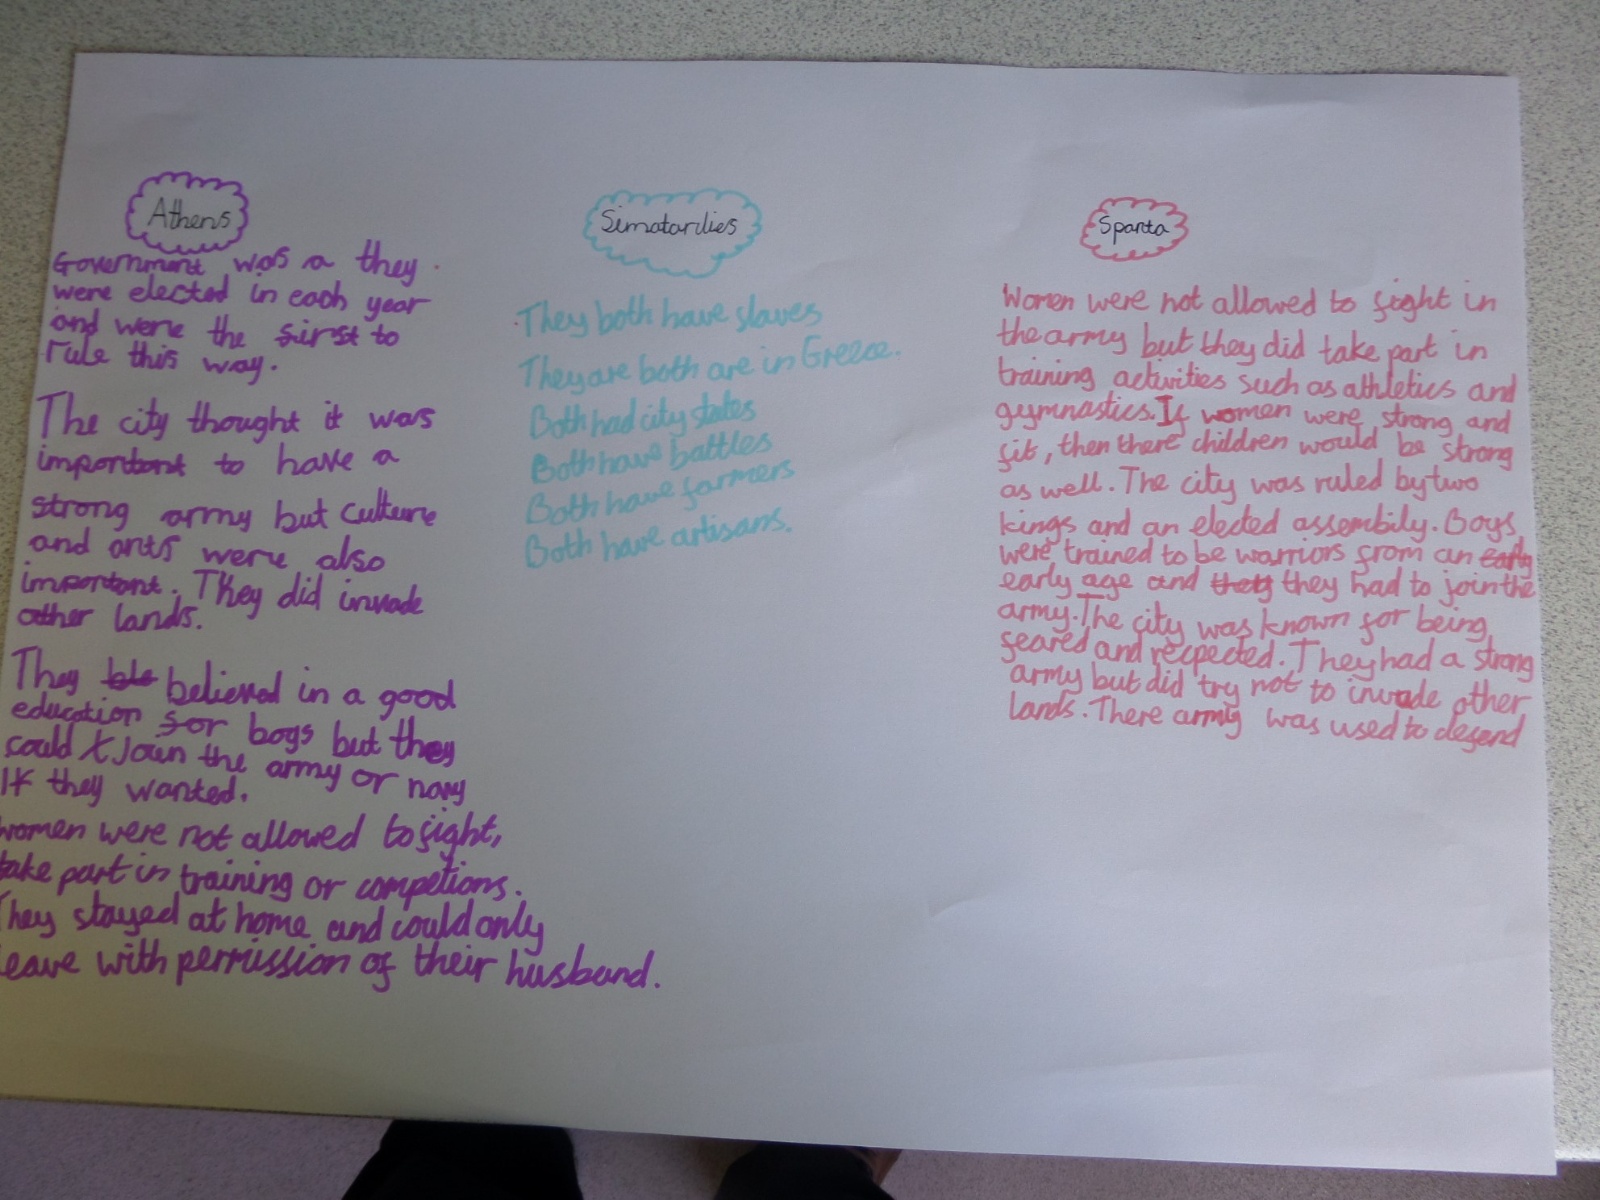 Athens
Government was a they
were elected in each year
and were the first to
rule this way.
The city thought it was
important to have a
strong army but culture
and arts were also
important. They did invade
other lands.
They ble believed in a good
education for boys but they
could t join the army or navy
If they wanted.
women were not allowed to fight,
take part in training or competions.
They stayed at home and could only
leave with permission of their husband.
Simatarilies
They both have slaves
They are both are in Greece.
Both had city states
Both have battles
Both have farmers
Both have artisans.
Sparta
Women were not allowed to fight in
the army but they did take part in
training activities such as athletics and
gymnastics. If women were strong and
fit, then there children would be strong
as well. The city was ruled by two
kings and an elected assembily. Boys
were trained to be warriors from an early
early age and they they had to join the
army. The city was known for being
feared and recpected. They had a strong
army but did try not to invade other
lands. There army was used to defend